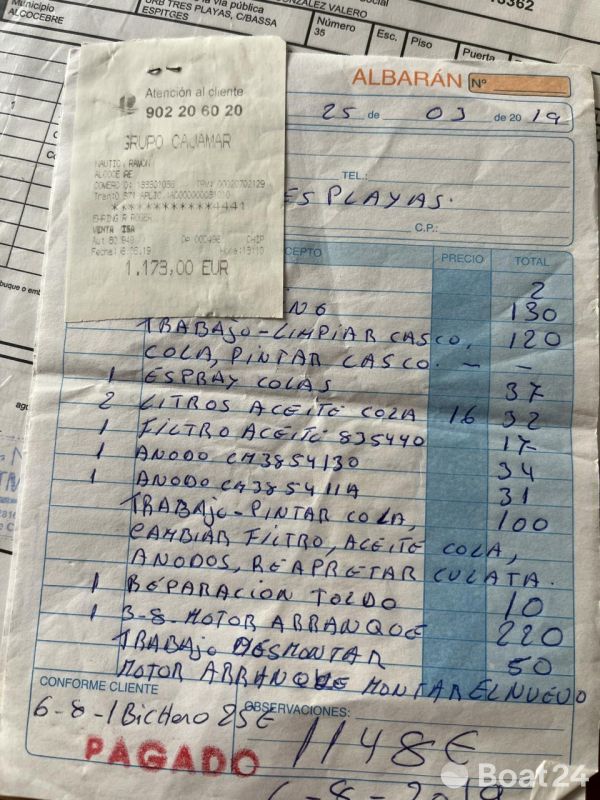 Municipio
ALCOCEBRE
la vía pública
URB TRES PLAYAS, C/BASSA
ESPITGES
GONZÁLEZ VALERO
Número
35
Esc,
Piso
Puerta
Atención al cliente
902 20 60 20
GRUPO CAJAMAR
NAUTIC RAMON
ALCOCEBRE
************4441
EHRING R ROGER
VENTA VISA
CHIP
1.173,00 EUR
ALBARÁN Nº
25 de 03 de 2019
TEL.:
ES PLAYAS.
C.P.:
CEPTO PRECIO TOTAL
2
NG 130
TRABAJO-LIMPIAR CASCO, 120
COLA, PINTAR CASCO. - -
1 ESPRAY COLAS 37
2 LITROS ACEITE COLA 16 32
1 FILTRO ACEITE 835440 17
1 ANODO CM3854130 34
1 ANODO CM385411A 31
TRABAJO-PINTAR COLA, 100
CAMBIAR FILTRO, ACEITE COLA,
ANODOS, REAPRETAR CULATA.
1 REPARACION TOLDO 10
1 3-8-MOTOR ARRANQUE 220
TRABAJO DESMONTAR 50
MOTOR ARRANQUE MONTAR EL NUEVO
CONFORME CLIENTE
OBSERVACIONES:
6-8-1 BicHero 25€
1148€
PAGADO
6-8-2019
Boat24